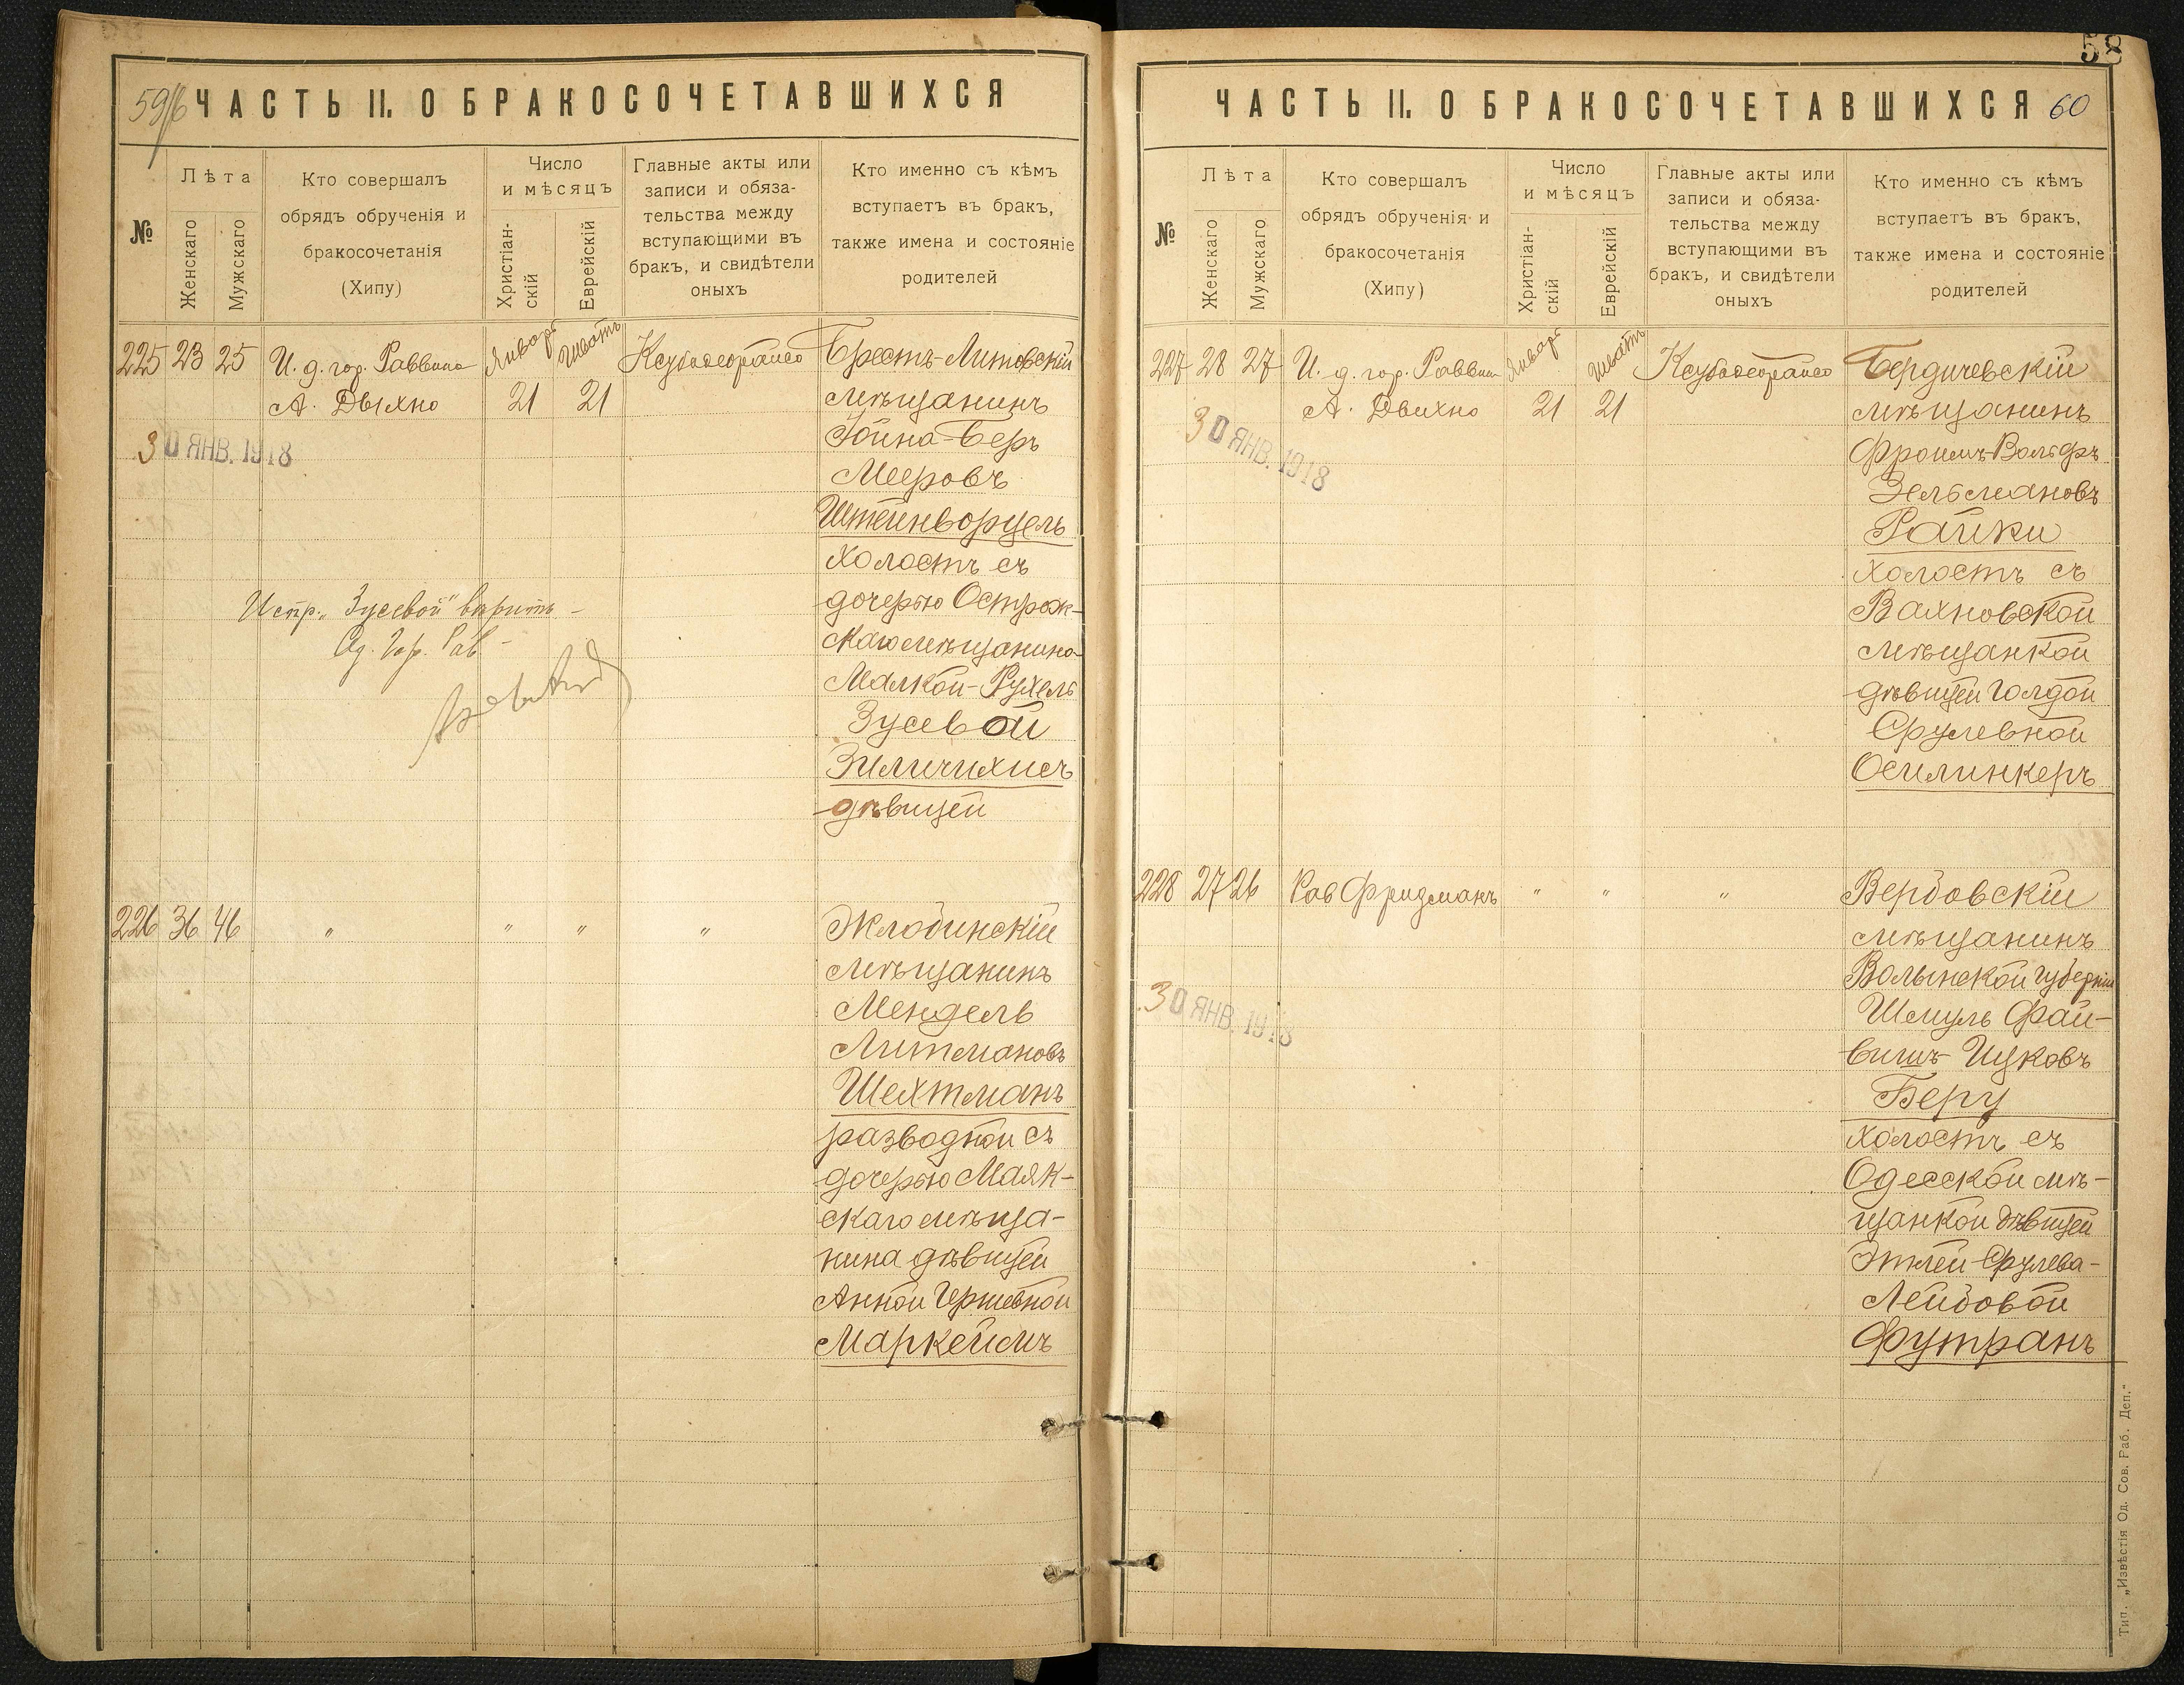 ЧАСТЬ II. О БРАКОСОЧЕТАВШИХСЯ
№
Лѣта
Женскаго
Мужскаго
Кто совершалъ
обрядъ обрученія и
бракосочетанія
(Хипу)
Число
и мѣсяцъ
Христіан-
скій
Еврейскій
Главные акты или
записи и обяза-
тельства между
вступающими въ
бракъ, и свидѣтели
оныхъ
Кто именно съ кѣмъ
вступаетъ въ бракъ,
также имена и состояніе
родителей
225 23 25 И. д. гор. Раввина Январь Шватъ Брестъ-Литовскій
А. Дыхно 21 21 мѣщанинъ
30 ЯНВ. 1918
Іойна-Беръ
Мееровъ
Штейнворцель
холостъ съ
дочерью Острож-
скаго мѣщанина
Малкой-Рухель
Зусевой
Зиличихисъ
дѣвицей
Испр. „Зусевой" вѣрить -
Од. Гор. Рав -
226 36 46 " " " " Жлобинскій
мѣщанинъ
Мендель
Литмановъ
Шехтманъ
разводной съ
дочерью Маяк-
скаго мѣща-
нина дѣвицей
Анной Гершевной
Маркеймъ
58
ЧАСТЬ II. О БРАКОСОЧЕТАВШИХСЯ 60
№
Лѣта
Женскаго
Мужскаго
Кто совершалъ
обрядъ обрученія и
бракосочетанія
(Хипу)
Число
и мѣсяцъ
Христіан-
скій
Еврейскій
Главные акты или
записи и обяза-
тельства между
вступающими въ
бракъ, и свидѣтели
оныхъ
Кто именно съ кѣмъ
вступаетъ въ бракъ,
также имена и состояніе
родителей
227 28 27 И. д. гор. Раввин Январь Шватъ Бердичевскій
А. Двихно 21 21 мѣщанинъ
30 ЯНВ. 1918
Фроимъ-Вольфъ
Зельмановъ
Райки
холостъ съ
Вахновской
мѣщанкой
дѣвицей Голдой
Срулевной
Осилинкеръ
228 27 26 Рав Фридманъ " " " Вербовскій
мѣщанинъ
Волынской губерніи
30 ЯНВ. 1918
Шмуль Фай-
вишъ Ицковъ
Беру
холостъ съ
Одесской мѣ-
щанкой дѣвицей
Этлей Срулева-
Лейбовой
Футранъ
Тип. „Извѣстія Од. Сов. Раб. Деп."